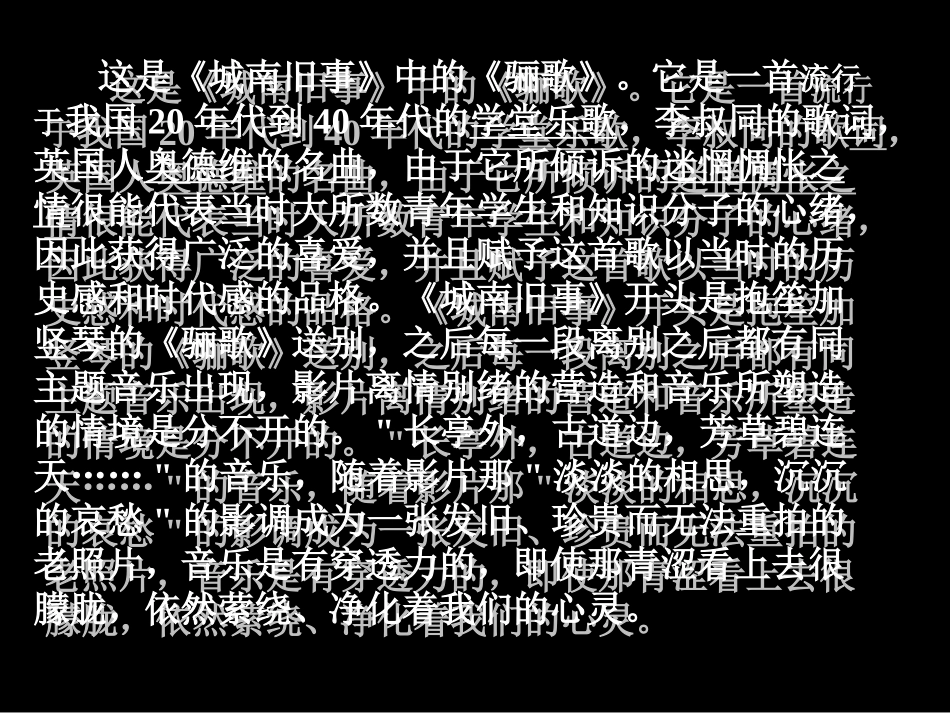 这是《城南旧事》中的《骊歌》。它是一首流行
于我国 20 年代到 40 年代的学堂乐歌，李叔同的歌词，
英国人奥德维的名曲，由于它所倾诉的迷惘惆怅之
情很能代表当时大所数青年学生和知识分子的心绪，
因此获得广泛的喜爱，并且赋予这首歌以当时的历
史感和时代感的品格。《城南旧事》开头是抱笙加
竖琴的《骊歌》送别，之后每一段离别之后都有同
主题音乐出现，影片离情别绪的营造和音乐所塑造
的情境是分不开的。 " 长亭外，古道边，芳草碧连
天…… " 的音乐，随着影片那 " 淡淡的相思，沉沉
的哀愁 " 的影调成为一张发旧、珍贵而无法重拍的
老照片，音乐是有穿透力的，即使那青涩看上去很
朦胧，依然萦绕、净化着我们的心灵。